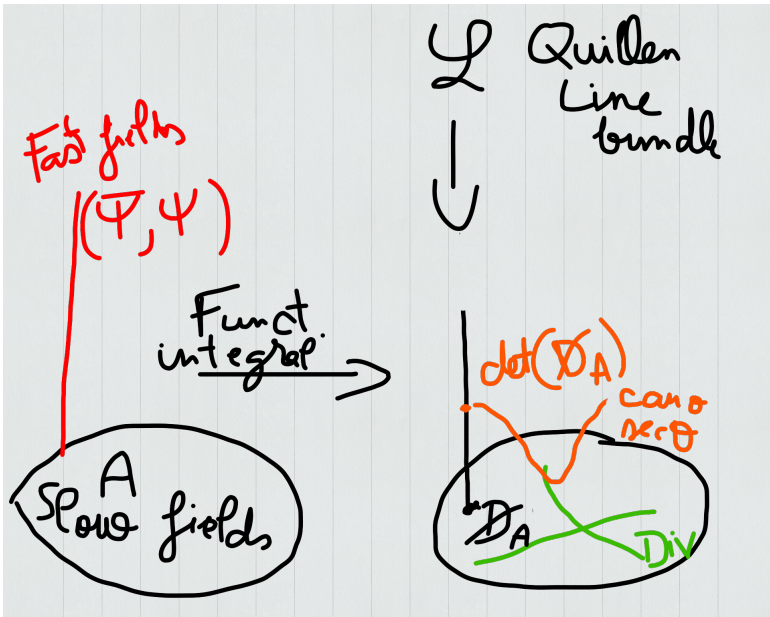 Fast fields
(Ψ̅, Ψ)
Funct.
integral.
A
Slow fields
ℒ Quillen
Line
bundle
det(D̸_A)
cano
zero
D̸_A
Div